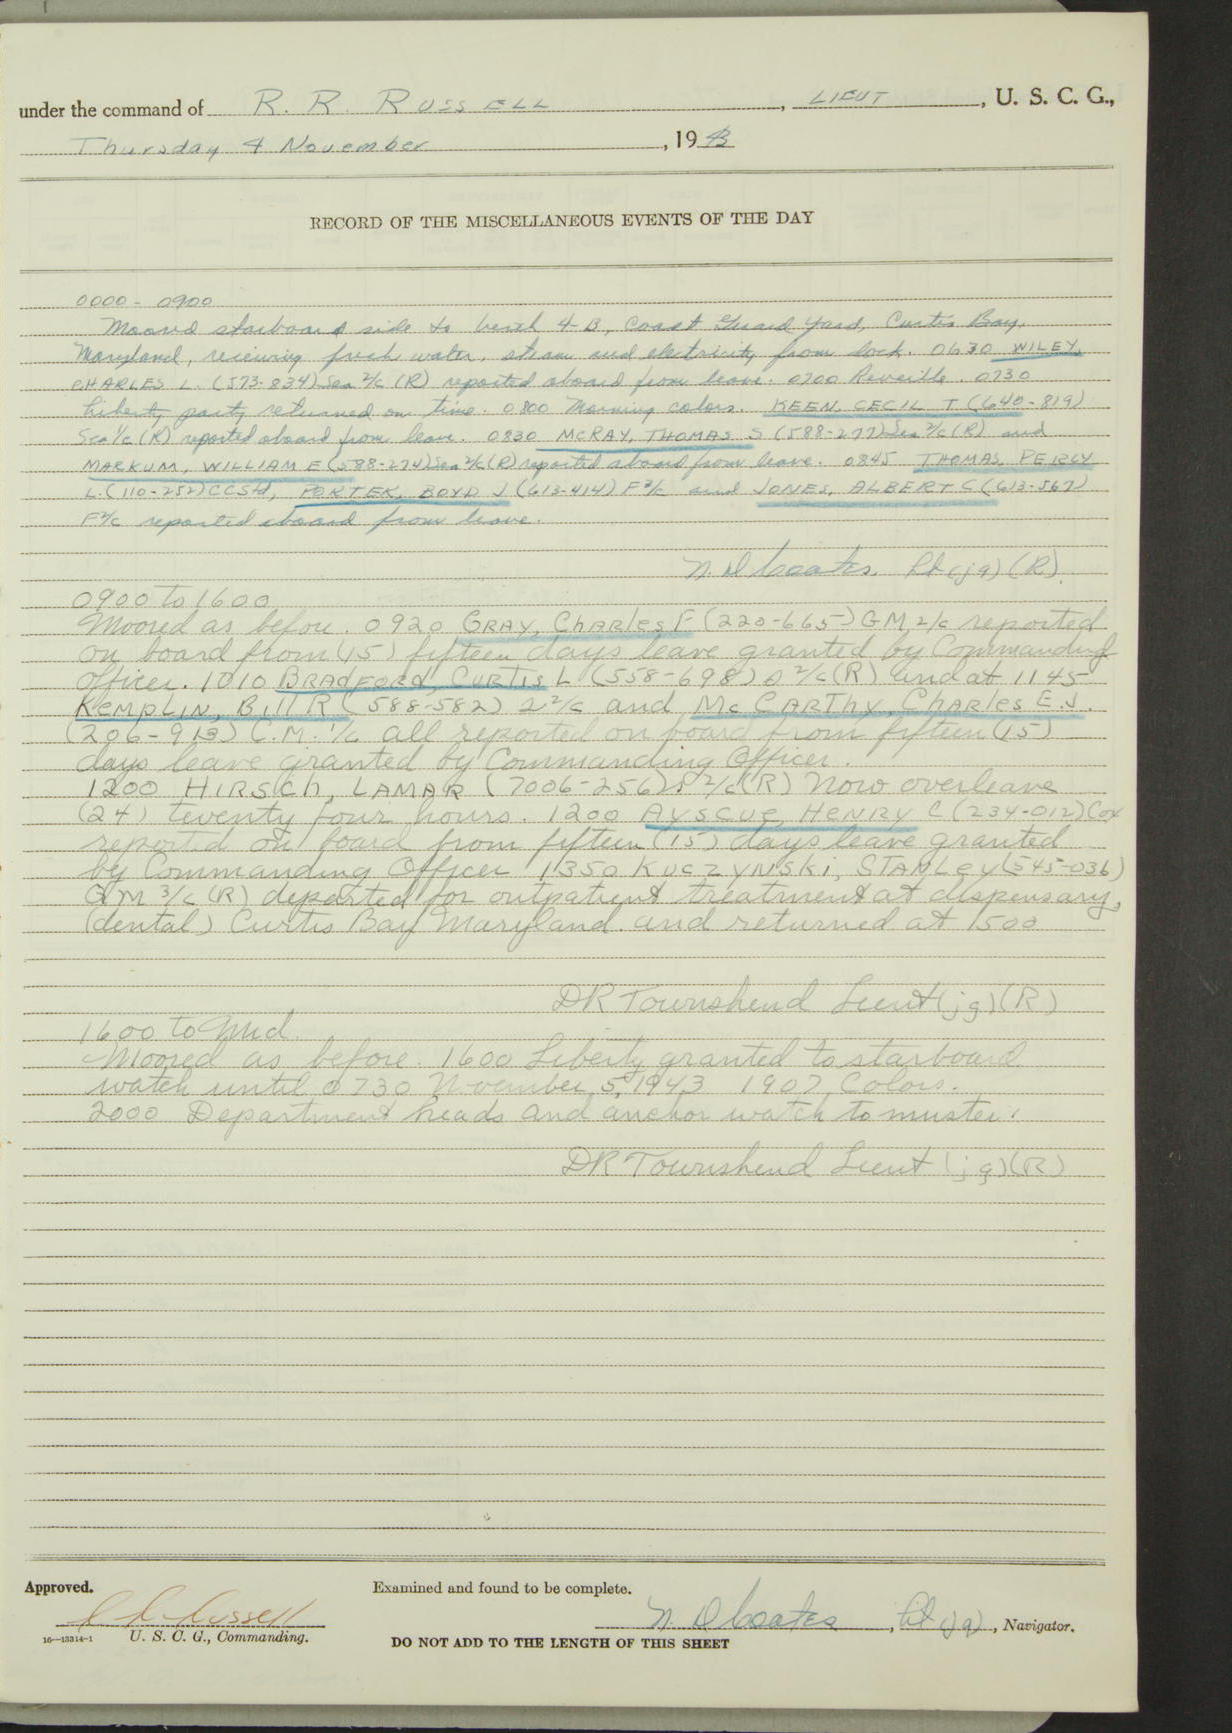 under the command of R. R. RUSSELL, LIEUT, U. S. C. G.,
Thursday 4 November, 1943
RECORD OF THE MISCELLANEOUS EVENTS OF THE DAY
0000 - 0900
Moored starboard side to berth 4-B, Coast Guard Yard, Curtis Bay,
Maryland, receiving fresh water, steam and electricity from dock. 0630 WILEY,
CHARLES L. (573-834) Sea 2/c (R) reported aboard from leave. 0700 Reveille. 0730
Liberty party returned on time. 0800 Morning colors. KEEN, CECIL T (640-819)
Sea 1/c (R) reported aboard from leave. 0830 MCRAY, THOMAS S (588-277) Sea 2/c (R) and
MARKUM, WILLIAM E (588-274) Sea 2/c (R) reported aboard from leave. 0845 THOMAS, PERCY
L. (110-252) CCStd, PORTER, BOYD J (613-414) F 3/c and JONES, ALBERT C (613-567)
F 2/c reported aboard from leave.
N. D Coates, Lt (jg) (R).
0900 to 1600
Moored as before. 0920 GRAY, CharlesF (220-665) GM 2/c reported
on board from (15) fifteen days leave granted by Commanding
officer. 1010 BRADFORD, CURTIS L (558-698) S 2/c (R) and at 1145
KEMPLIN, Bill R (588-582) S 2/c and McCARThy, Charles E.J.
(206-913) C.M. 1/c all reported on board from fifteen (15)
days leave granted by Commanding Officer
1200 HIRSch, LAMAR (7006-256) S 2/c (R) Now overleave
(24) twenty four hours. 1200 AYSCUE, HENRY C (234-012) Cox
reported on board from fifteen (15) days leave granted
by Commanding Officer 1350 KUCZYNSKi, STANLEY (545-036)
QM 3/c (R) departed for outpatient treatment at dispensary,
(dental) Curtis Bay Maryland. and returned at 1500
DR Townshend Lieut (jg) (R)
1600 to Mid.
Moored as before. 1600 Liberty granted to starboard
watch until 0730 November 5, 1943 1907 Colors.
2000 Department heads and anchor watch to muster.
DR Townshend Lieut (jg) (R)
Approved.
Examined and found to be complete.
R R Russell
N D Coates, Lt (jg), Navigator.
16—13314-1 U. S. C. G., Commanding.
DO NOT ADD TO THE LENGTH OF THIS SHEET